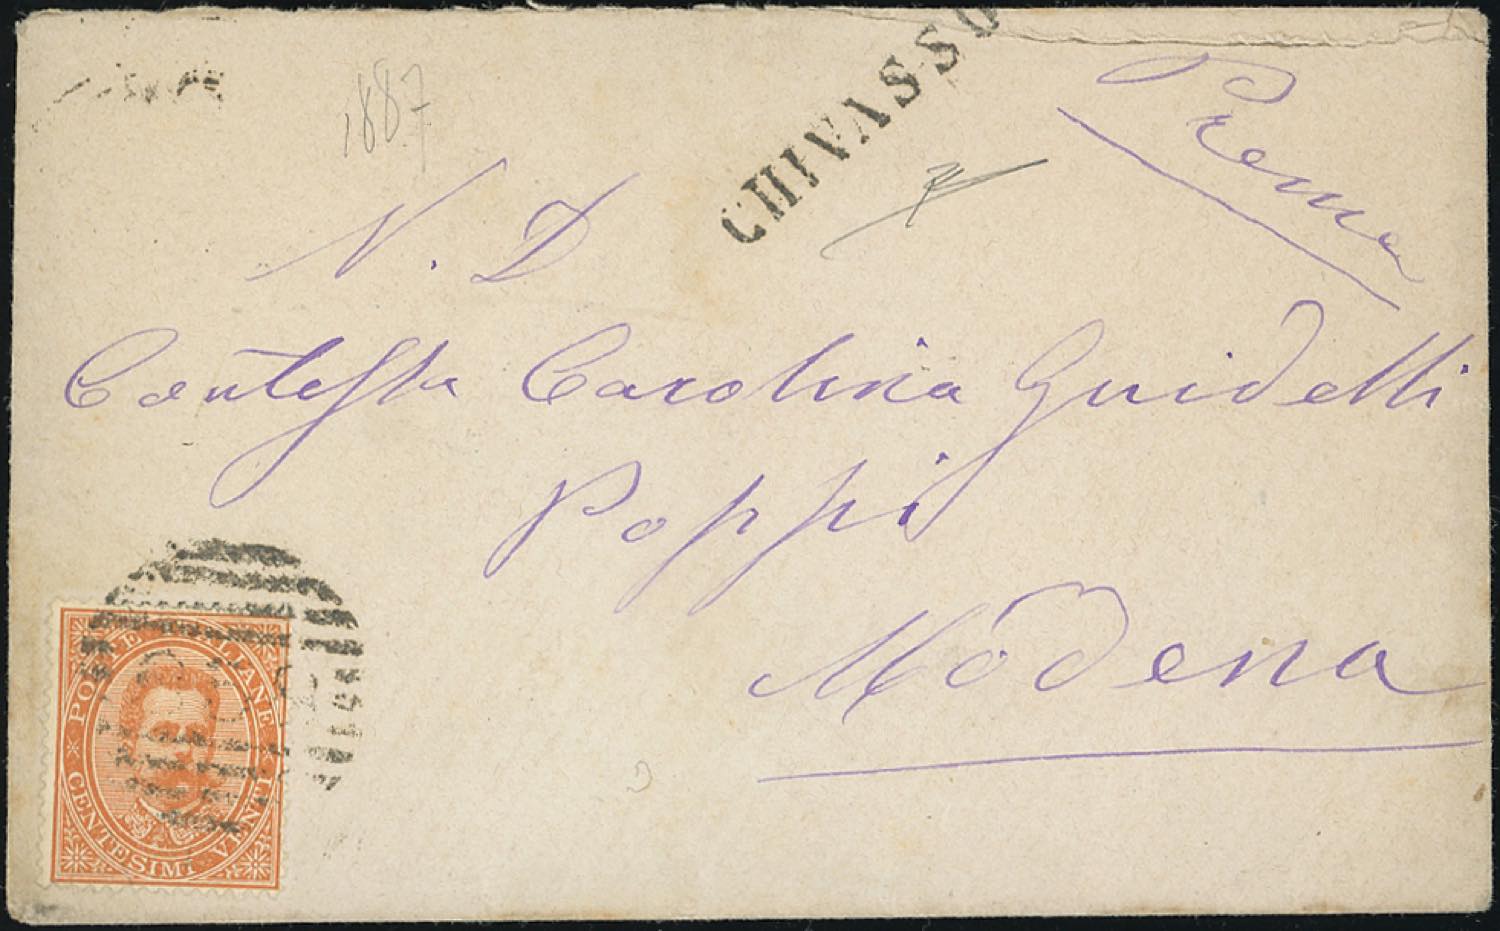 1887
CHIVASSO
Prema
N. D
Contessa Carolina Guidelli
Poppi
Modena
POSTE ITALIANE
CENTESIMI VENTI